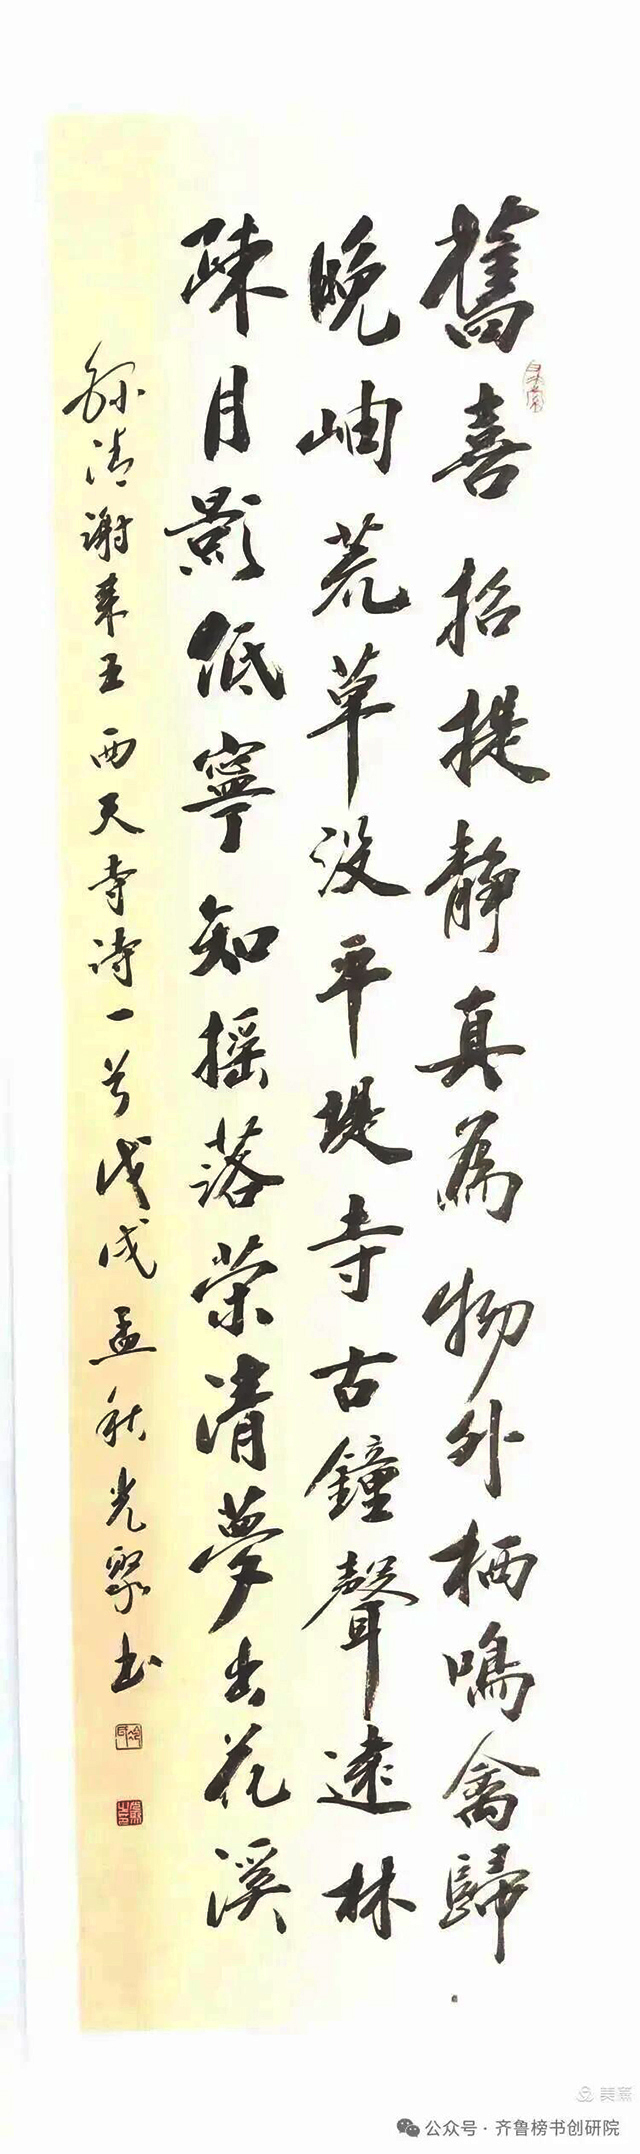 舊喜招提静真為物外栖鳴禽歸
晚岫荒草没平堤寺古鐘聲遠林
疎月影低寧知摇落榮清夢出花溪
錄清謝秉玉西天寺詩一首戊戌孟秋光聚书
美篇
公众号·齐鲁榜书创研院